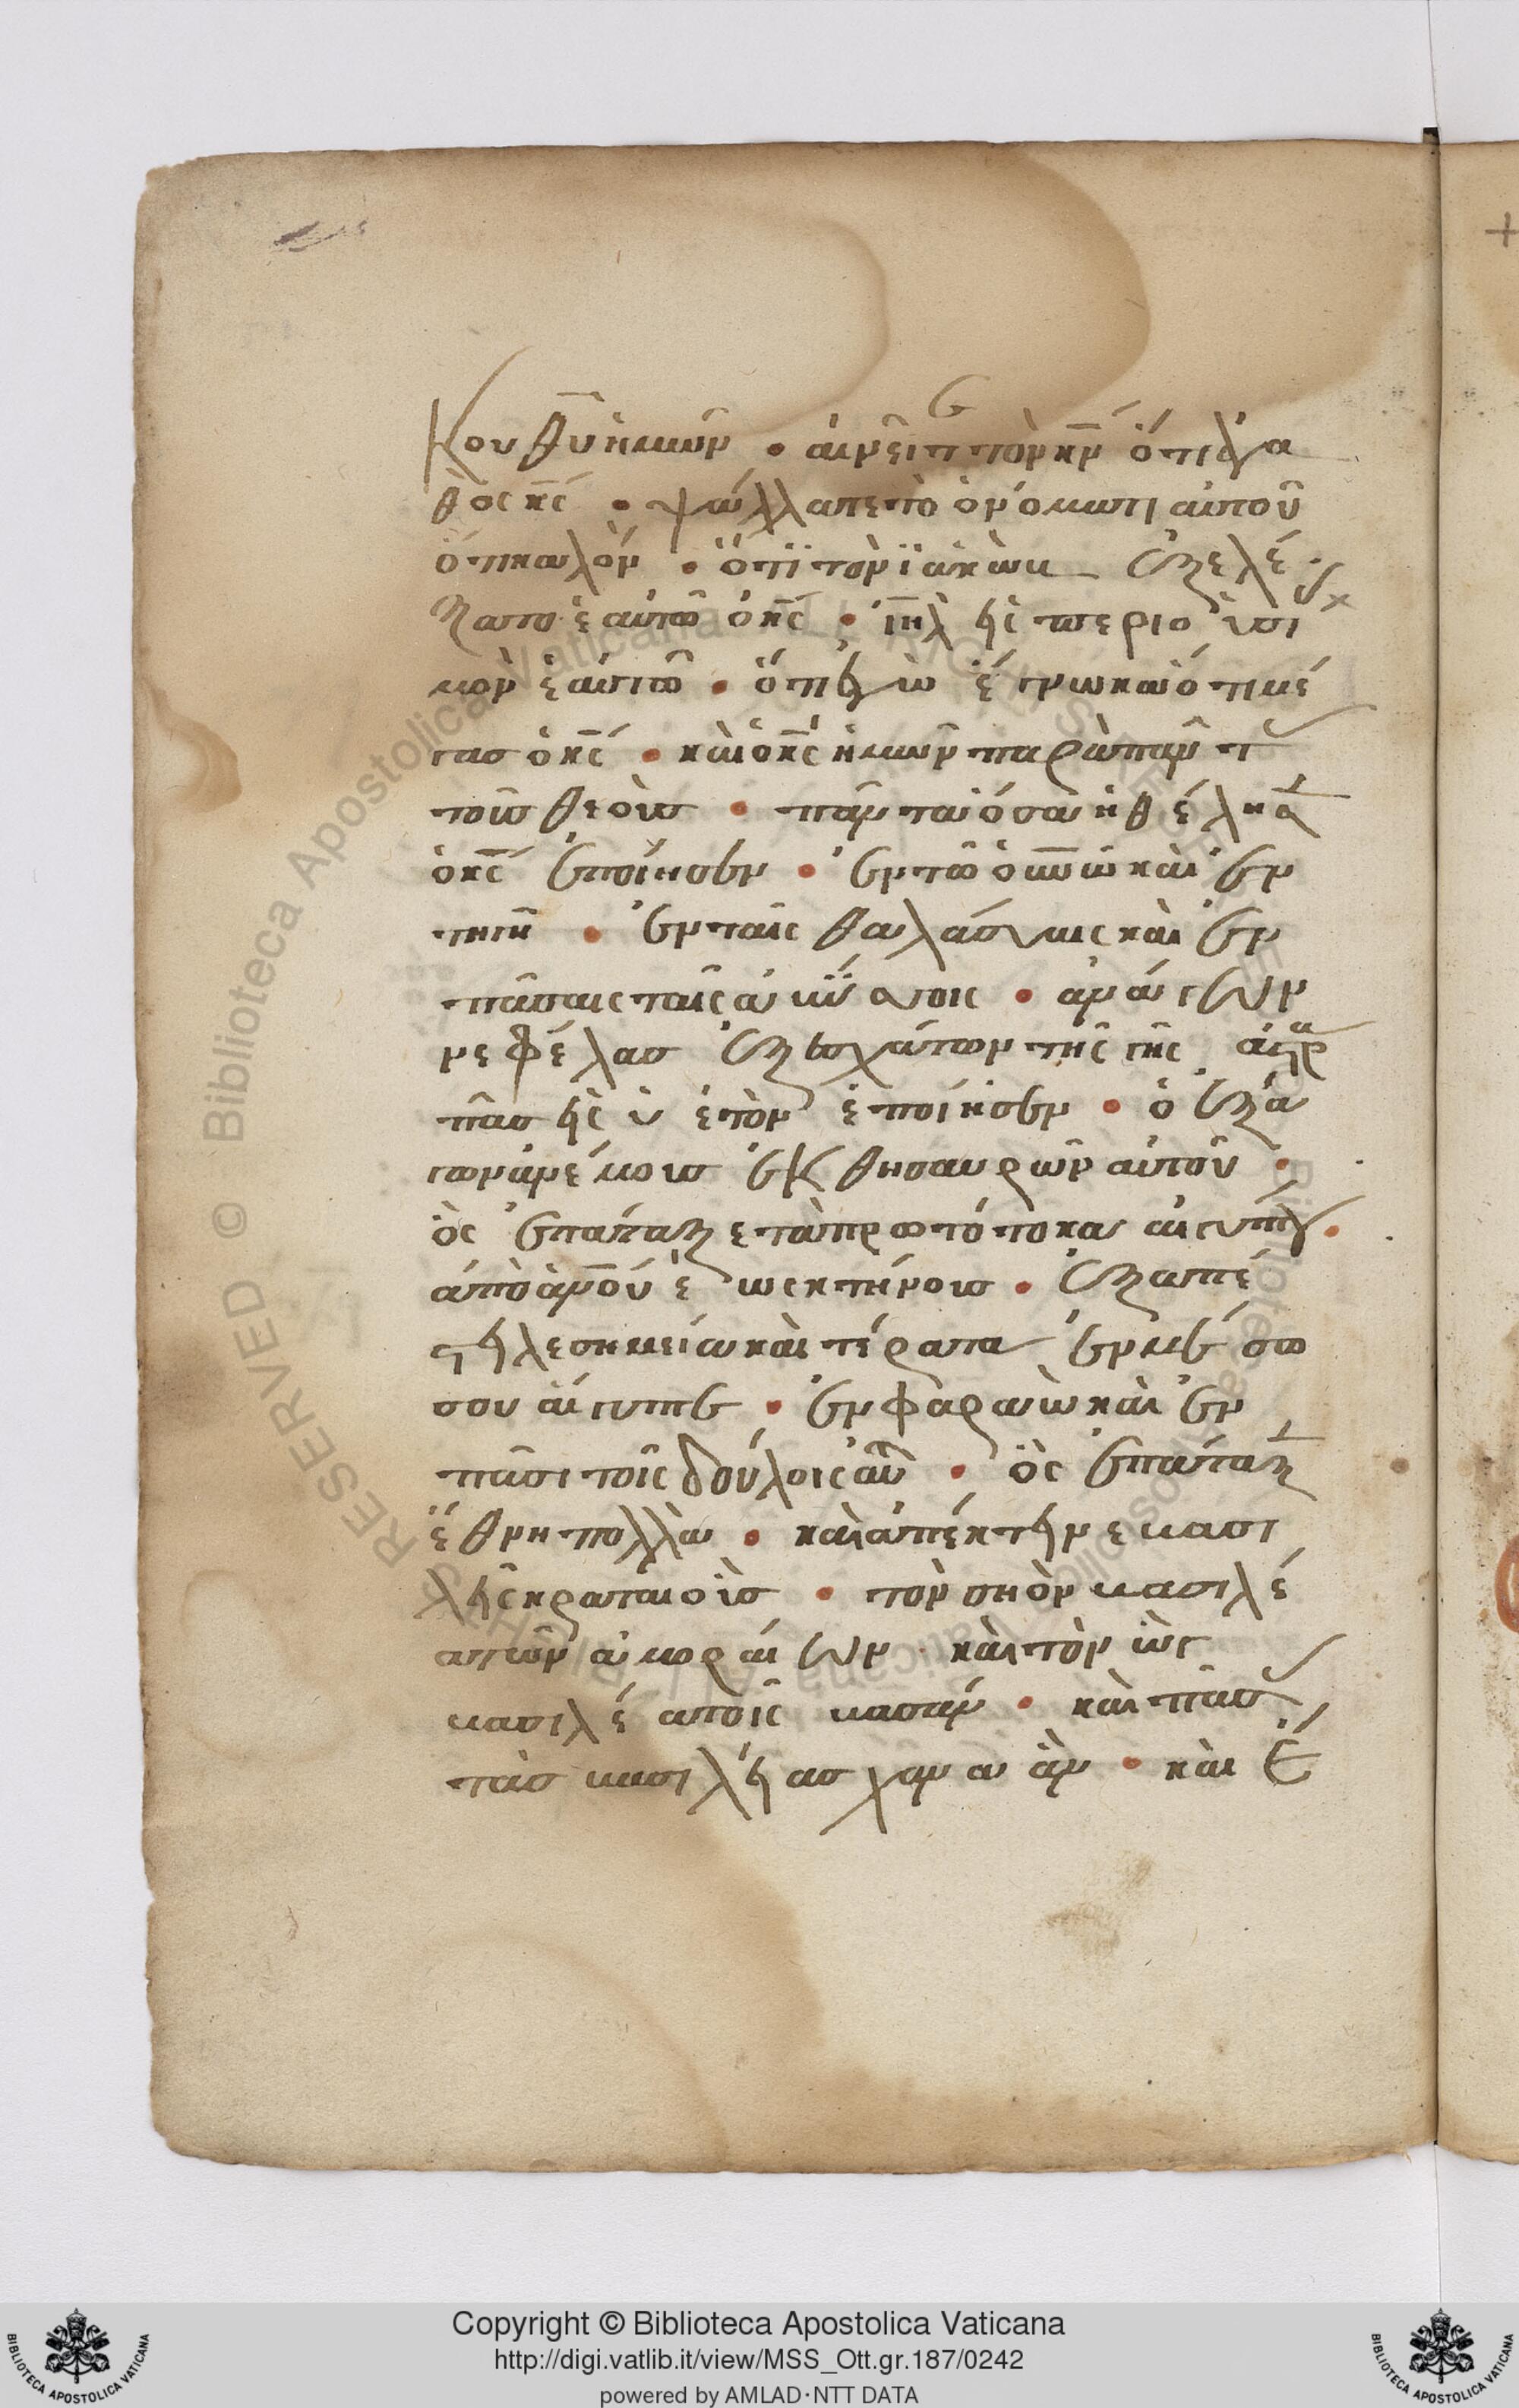 κου θυ ἡμῶν • αἰνεῖτε τὸν κν ὅτι ἀγα
θὸς κς • ψάλλατε τὸ ὀνόματι αὐτοῦ
ὅτι καλόν • ὅτι τὸν ϊακὼβ ἐξελέ
ξατο ἑαυτῶ ὁ κς • ιηλ εἰς περιουσι
μὸν ἑαυτῶ • ὅτι ἐγὼ ἔγνωκα ὅτι μέ
γασ ὁ κς • καὶ ὁ κς ἡμῶν παρὰ πάντ
τοὺσ θεοὺσ • πάντα ὅσα ἠθέλησ
ὁ κς ἐποίησεν • ἐν τῶ ουνω καὶ ἐν
τῆ γῆ • ἐν ταῖς θαλάσαις καὶ ἐν
πάσαις ταῖς ἀβύσσοις • ἀνάγων
νεφέλασ ἐξ ἐσχάτων τῆς γῆς ἀστρα
πὰσ εἰς ὑετὸν ἐποίησεν • ὁ ἐξά
γων ἀνέμουσ ἐκ θησαυρῶν αὐτοῦ •
ὃς ἐπάταξε τὰ πρωτότοκα αἰγύπτου •
ἀπὸ ανου ἕως κτήνουσ • ἐξαπέ
στειλε σημεία καὶ τέρατα ἐν μέσω
σου αἴγυπτε • ἐν φαραὼ καὶ ἐν
πᾶσι τοῖς δούλοις αὐτοῦ • ὃς ἐπάταξ
ἔθνη πολλὰ • καὶ ἀπέκτεινε βασι
λεῖς κραταιοὺσ • τὸν σηὸν βασιλέ
α τῶν ἀμοραίων • καὶ τὸν ὼγ
βασιλέα τοῖς βασάν • καὶ πάσ
τὰσ βασιλείασ χαναάν • καὶ ἔ
Copyright © Biblioteca Apostolica Vaticana
http://digi.vatlib.it/view/MSS_Ott.gr.187/0242
powered by AMLAD·NTT DATA
BIBLIOTECA APOSTOLICA VATICANA
BIBLIOTECA APOSTOLICA VATICANA